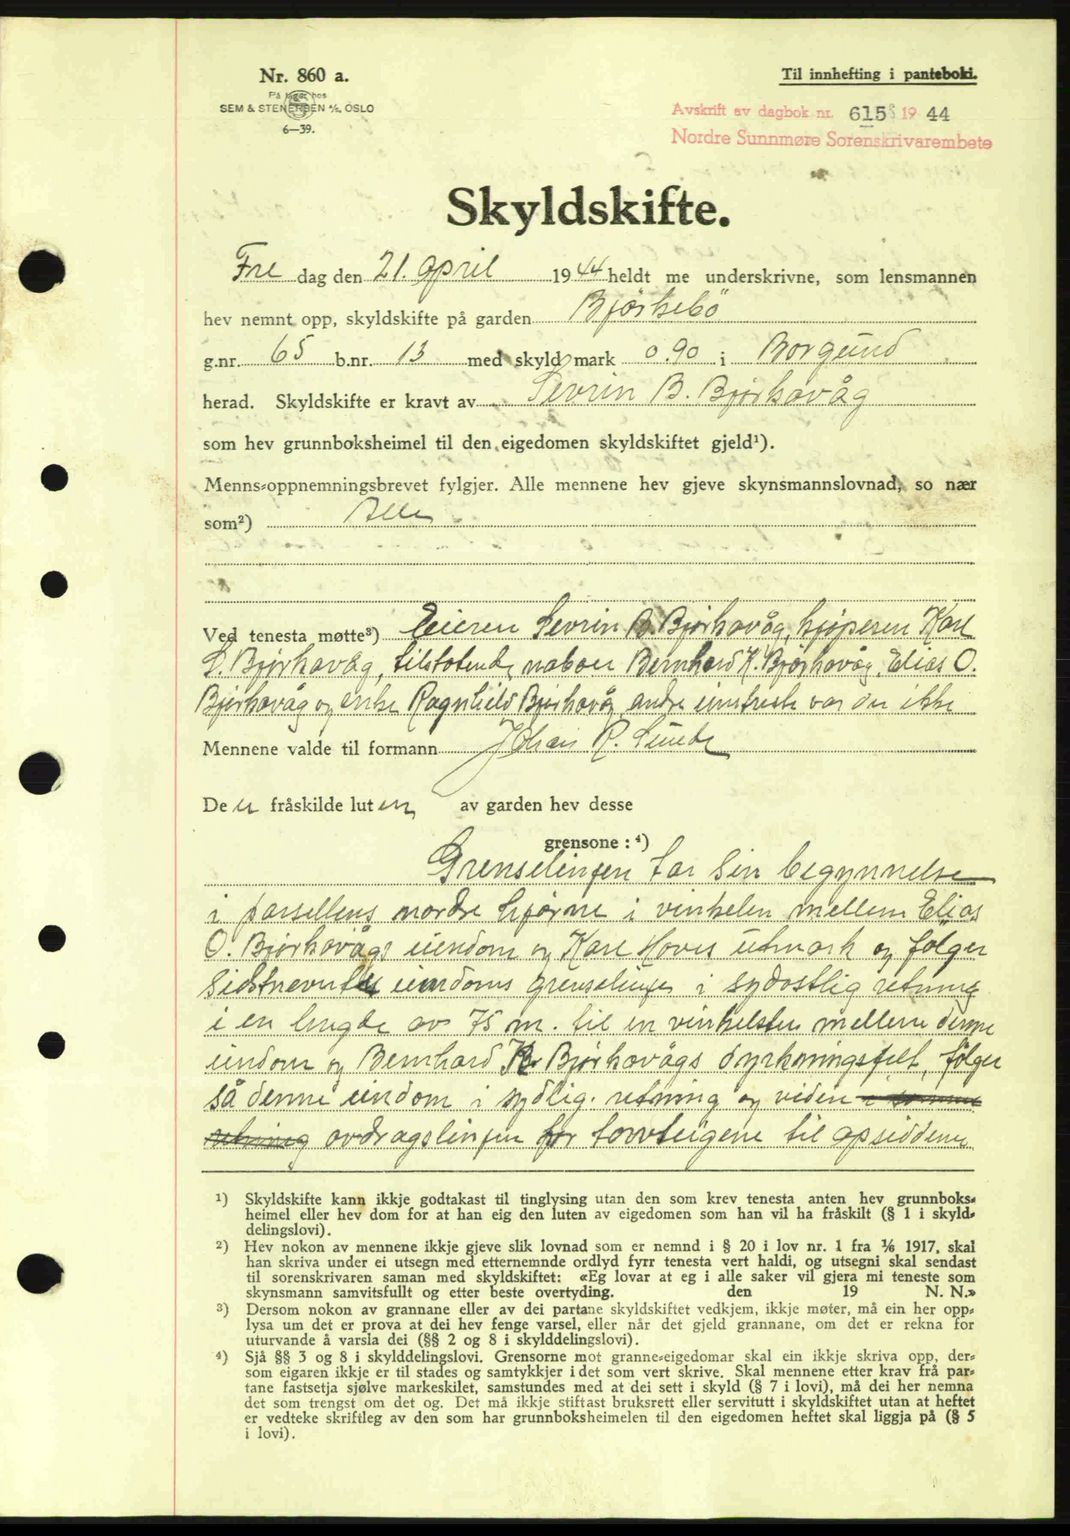 Nr. 860 a.
På lager hos
SEM & STENERSEN A/S, OSLO
6—39.
Til innhefting i panteboki.
Avskrift av dagbok nr. 615 1944
Nordre Sunnmøre Sorenskrivarembete
Skyldskifte.
Fre dag den 21. april 1944 heldt me underskrivne, som lensmannen
hev nemnt opp, skyldskifte på garden Bjørkebö
g.nr. 65 b.nr. 13 med skyld mark 0.90 i Borgund
herad. Skyldskifte er kravt av Sevrin B. Bjørkavåg
som hev grunnboksheimel til den eigedomen skyldskiftet gjeld¹).
Menns-oppnemningsbrevet fylgjer. Alle mennene hev gjeve skynsmannslovnad, so nær
som²) Alle
Ved tenesta møtte³) Eieren Sevrin B. Bjørkavåg, kjøperen Karl
S. Bjørkavåg, tilstøtende naboer Bernhard K. Bjørkavåg, Elias O.
Bjørkavåg og enke Ragnhild Bjørkavåg andre var der ikke
Mennene valde til formann Johan R. Sunde
De n fråskilde luten av garden hev desse
grensone : ⁴)
Grenselinjen tar sin begynnelse
i parsellens nordre hjørne i vinkelen mellem Elias
O. Bjørkavågs eiendom og Karl Hoves utmark og følger
sidstnevntes eiendoms grenselinje i sydostlig retning
i en lengde av 75 m. til en vinkelsten mellem denne
eiendom og Bernhard K. Bjørkavågs dyrkningsfelt, følger
så denne eiendom i sydlig retning og viden i samme
retning avdragslinjen for torvteigene til opsiddern
¹) Skyldskifte kann ikkje godtakast til tinglysing utan den som krev tenesta anten hev grunnboks-
heimel eller hev dom for at han eig den luten av eigedomen som han vil ha fråskilt (§ 1 i skyld-
delingslovi).
²) Hev nokon av mennene ikkje gjeve slik lovnad som er nemnd i § 20 i lov nr. 1 fra ⅙ 1917, skal
han skriva under ei utsegn med etternemnde ordlyd fyrr tenesta vert haldi, og utsegni skal sendast
til sorenskrivaren saman med skyldskiftet: «Eg lovar at eg i alle saker vil gjera mi teneste som
skynsmann samvitsfullt og etter beste overtyding. den 19 N. N.»
³) Dersom nokon av grannane eller av dei partane skyldskiftet vedkjem, ikkje møter, må ein her opp-
lysa um det er prova at dei hev fenge varsel, eller når det gjeld grannane, om det er rekna for
uturvande å varsla dei (§§ 2 og 8 i skylddelingslovi).
⁴) Sjå §§ 3 og 8 i skylddelingslovi. Grensorne mot granne-eigedomar skal ein ikkje skriva opp, der-
som eigaren ikkje er til stades og samtykkjer i det som vert skrive. Skal mennene etter krav frå par-
tane fastsetja sjølve markeskilet, samstundes med at dei sett i skyld (§ 7 i lovi), må dei her nemna
det som trengst om det og. Det må ikkje stiftast bruksrett eller servitutt i skyldskiftet utan at heftet
er vedteke skriftleg av den som har grunnboksheimelen til den eigedomen heftet skal liggja på (§ 5
i lovi).